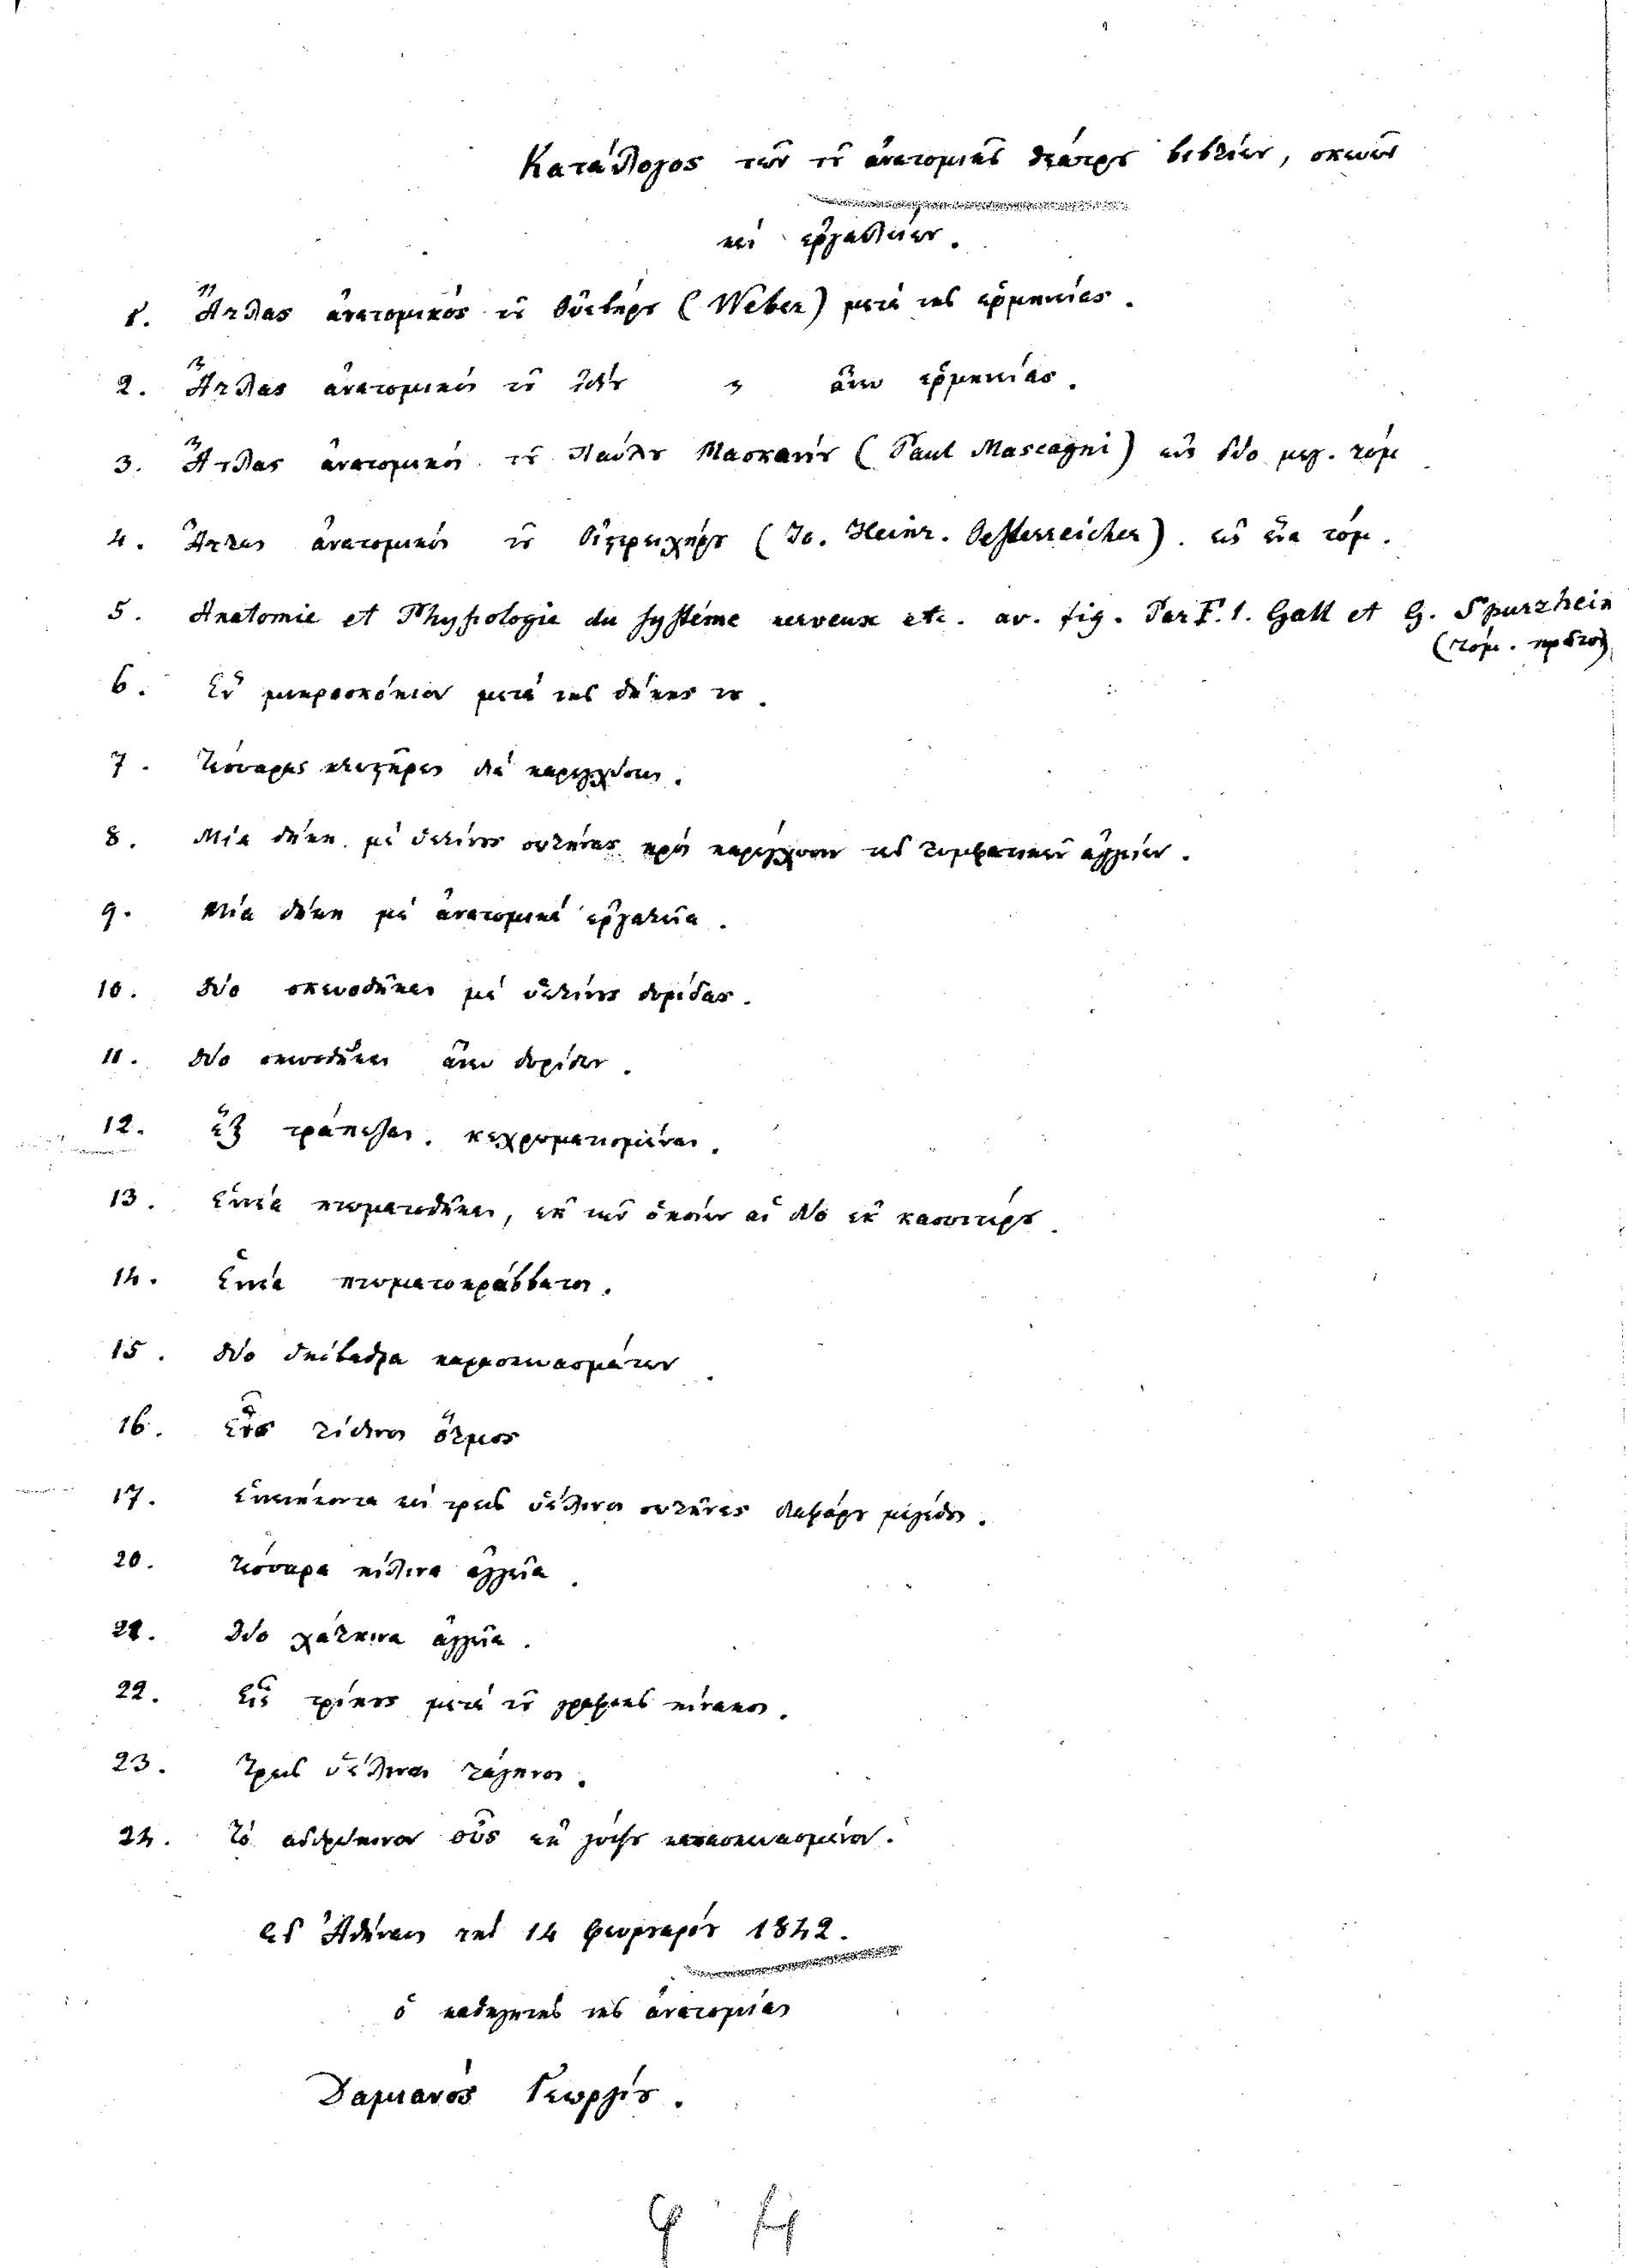 Κατάλογος τῶν τοῦ ἀνατομικοῦ θεάτρου βιβλίων, σκευῶν
καὶ ἐργαλείων.
1. Ἄτλας ἀνατομικὸς τοῦ Οὐεβέρου (Weber) μετὰ τῆς ἑρμηνείας.
2. Ἄτλας ἀνατομικὸς τοῦ ἰδίου " ἄνευ ἑρμηνείας.
3. Ἄτλας ἀνατομικὸς τοῦ Παύλου Μασκανίου (Paul Mascagni) εἰς δύο μεγ. τόμ
4. Ἄτλας ἀνατομικὸς τοῦ Οἰστρειχέρου (Jo. Heinr. Oesterreicher). εἰς ἕνα τόμ.
5. Anatomie et Physiologie du système nerveux etc. av. fig. Par F. I. Gall et G. Spurzheim
(τόμ. πρῶτος)
6. Ἓν μικροσκόπιον μετὰ τῆς θήκης του.
7. Τέσσαρες κλυστῆρες διὰ παρεγχύσεις.
8. Μία θήκη μὲ ὑελίνους σωλῆνας πρὸς παρέγχυσιν τῶν λυμφατικῶν ἀγγείων.
9. Μία θήκη μὲ ἀνατομικὰ ἐργαλεῖα.
10. Δύο σκευοθῆκαι μὲ ὑελίνους θυρίδας.
11. Δύο σκευοθῆκαι ἄνευ θυρίδων.
12. Ἓξ τράπεζαι κεχρωματισμέναι.
13. Ἐννέα πτωματοθῆκαι, ἐκ τῶν ὁποίων αἱ δύο ἐκ κασσιτέρου.
14. Ἐννέα πτωματοκράββατοι.
15. Δύο ὑπόβαθρα παρασκευασμάτων.
16. Εἷς λίθινος ὅλμος
17. Ἐνενήκοντα καὶ τρεῖς ὑέλινοι σωλῆνες διαφόρου μεγέθους.
20. Τέσσαρα πήλινα ἀγγεῖα.
21. Δύο χάλκινα ἀγγεῖα.
22. Εἷς τρίπους μετὰ τοῦ γραφικοῦ πίνακος.
23. Τρεῖς ὑέλινοι λάγηνοι.
24. Τὸ ἀνθρώπινον οὖς ἐκ γύψου κατασκευασμένον.
Ἐν Ἀθήναις τὴν 14 Φευρουαρίου 1842.
ὁ καθηγητὴς τῆς ἀνατομίας
Δαμιανὸς Γεωργίου.